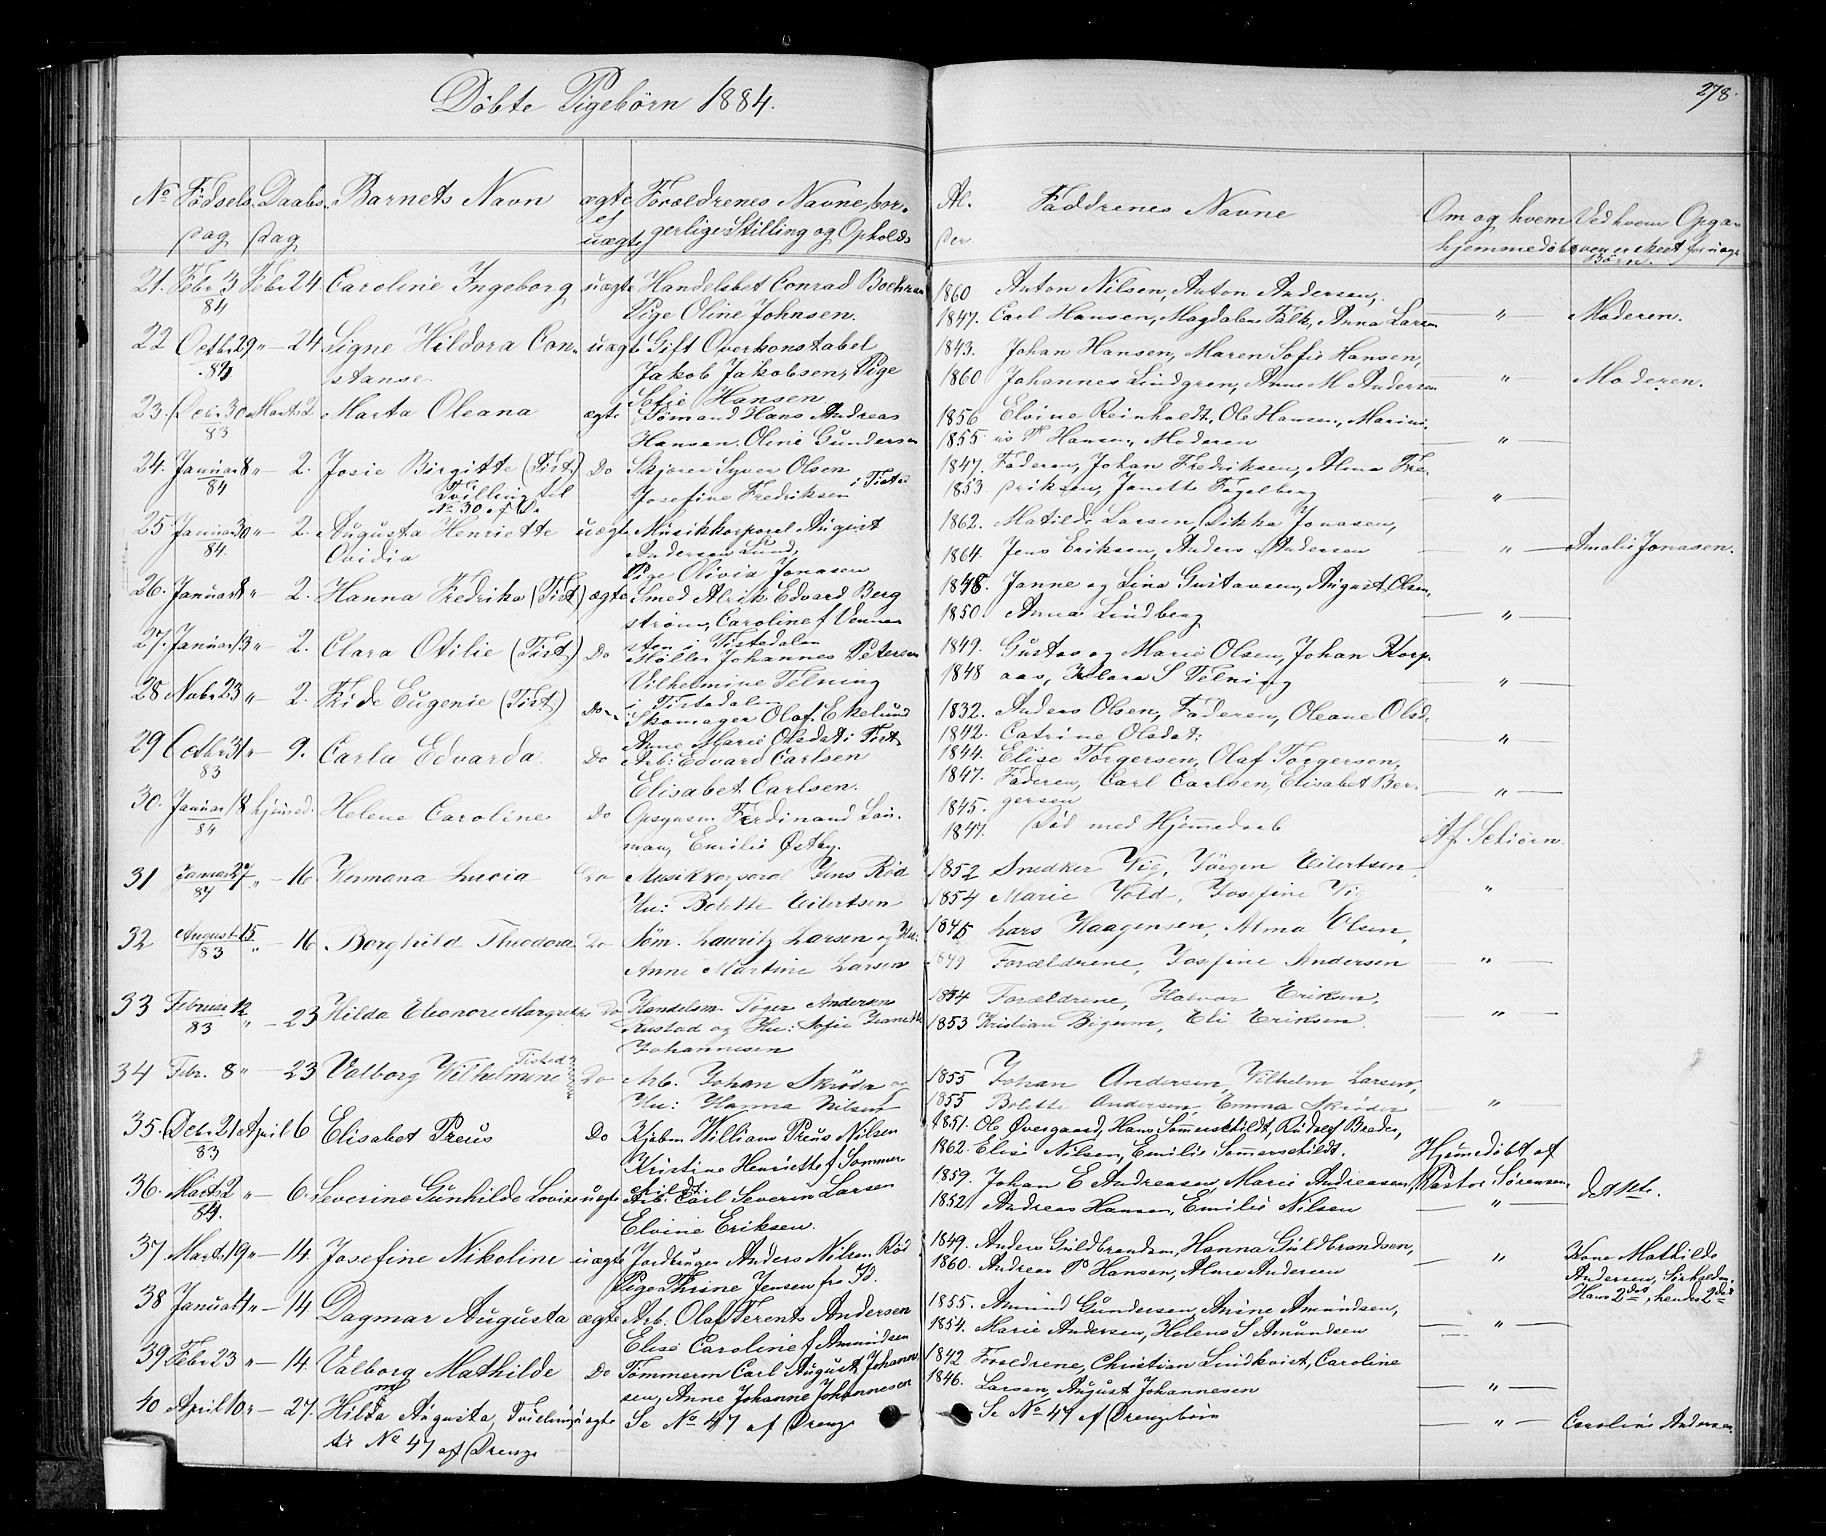 Döbte Pigebörn 1884.
278.
No Födsels Daabs Barnets Navn ægte Foroldrenes Navne, bor- Al- Faddrenes Navne Om og hvem Ved hvem Opga-
dag dag el uægte gerlige Stilling og Opholds der hjemmedöbt ven er skeet for uægte Börn.
21. Febr 3 Febr 24 Caroline Ingeborg uægte Handelsbet Conrad 1860 Anton Nilsen, Anton Andersen,
84 Pige Oline Johnsen. 1847. Carl Hansen, Magdalene Falk, Anna Larsen " Moderen.
22 Octbr 29 " 24 Signe Hildora Con- uægte Gift Overkonstabel 1843. Johan Hansen, Maren Sofie Hansen,
stanse. Jakob Jakobsen, Pige 1860 Johannes Lindgren, Anne M Andersen " Moderen.
Sofie Hansen
23. Dcbr 30 Marts 2 Marta Oleana ægte Sömand Hans Andreas 1856 Elvine Reinholdt, Ole Hansen,
83 Hansen. Oline Gundersen 1855 P Hansen, Moderen "
24. Januar 8 " 2. Josie Birgitte (Tist.) Do Skjerer Syver Olsen 1847. Faderen, Johan Fredriksen, Alma Fre-
84 Tvilling til Josefine Fredriksen i Tisted 1853. driksen, Janette Fogelberg "
No 30
25 Januar 30 " 2. Augusta Henriette uægte Musikkorporal August 1862. Matilde Larsen, Dikka Jonasen,
84. Ovidia Andersen Lund, 1864. Jens Eriksen, Anders Andersen " Amalie Jonasen.
Pige Olivia Jonasen
26. Januar 8 " 2. Hanna Fredrika (Tist.) ægte Smed Alrik Edvard Berg 1848. Janne og Lina Gustavsen, August Olsen,
ström, Caroline f Venner 1850. Anna Lindberg "
sten i Tistedalen
27. Januar 13 " 2. Clara Otilie (Tist.) Do Möller Johannes Petersen 1849. Gustav og Marie Olsen, Johan Korp-
Vilhelmine Telning 1848 aas, Klara S Telning "
i Tistedalen
28 Nobr 23 " 2. Fride Eugenie (Tist.) Do Skomager Olaf Ekelund 1832. Anders Olsen, Faderen, Oleane Olsd.
Anne Marie Olsdat i Tist 1842. Catrine Olsdat: "
29 Octbr 31 " 9. Carla Edvarda Do Arb: Edvard Carlsen 1844. Elise Torgersen, Olaf Torgersen,
83 Elisabet Carlsen. 1847. Faderen, Carl Carlsen, Elisabet Ber- "
gersen
30. Januar 18 hjemmed. Helene Caroline Do Opsynsm Ferdinand Lau- 1845.
84 man, Emilie Østby. 1847. Död med Hjemmedaab Af
31 Januar 27 " 16 Hermana Lucia Do Musikkorporal Jens Röd 1852 Snedker Vig, Jörgen Eilertsen,
84 Hu: Bolette Eilertsen 1854 Marie Vold, Josefine Vig "
32 August 15 " 16 Borghild Theodora Do Söm. Lauritz Larsen og Hu: 1845 Lars Haagensen, Alma Olsen,
83 Anne Martine Larsen 1849 Forældrene, Josefine Andersen "
33 Februar 12 " 23 Hilda Eleonore Margrethe Do Handelsm Töger Andersen 1854 Forældrene, Halvor Eriksen,
83 Rustad og Hu: Sofie Jeanette 1853 Kristian Bigum, Eli Eriksen. "
Johannesen
34 Febr. 8 " 23 Valborg Wilhelmine Tisted Do Arb. Johan Skröder og 1855 Johan Andersen, Vilhelm Larsen,
Hu: Hanna Nilsen 1855 Bolette Andersen, Emma Skröder "
35. Dcbr 21 April 6 Elisabet Preus Do Kjöbm William Preus Nilsen 1851. Ole Övergaard, Hans Sommerschildt, Rudolf Brader,
83 Kristine Henriette f Sommer 1862. Elise Nilsen, Emilie Sommerschildt. Hjemmedöbt af
schildt Pastor Sörensen
36. Marts 2 " 6. Severine Gunhilde Lovise uægte Arb. Carl Severin Larsen 1859. Johan E Andreasen, Marie Andreasen,
84. Elvine Eriksen. 1852. Andreas Hansen, Emilie Nilsen "
37. Marts 19 " 14. Josefine Nikoline uægte Jordbruger Anders Nilsen Röd 1849. Anders Guldbrandsen, Hanna Guldbrandsen, Kone Mathilde
Pige Thrine Jensen fra Id. 1860. Andreas P Hansen, Alma Andersen " Andersen,
Hans 2den, hendes 2det
38 Januar " 14 Dagmar Augusta ægte Arb. Olaf Ferents Andersen 1855. Amund Gundersen, Anine Amundsen,
Elise Caroline f Amundsen 1854. Marie Andersen, Helene S Amundsen "
39 Febr 23 " 14. Valborg Mathilde Do Tömmerm Carl August Johann 1842. Foroldrene, Christian Lindkvist, Caroline
sen, Anne Johanne Johannesen 1846. Larsen, August Johannesen "
40 April 10 " 27. Hilda Augusta, Tvilling uægte Se No 47 af Drenge Se No 47 af Drengebörn " Caroline Andersen
til No 47 af Drenge